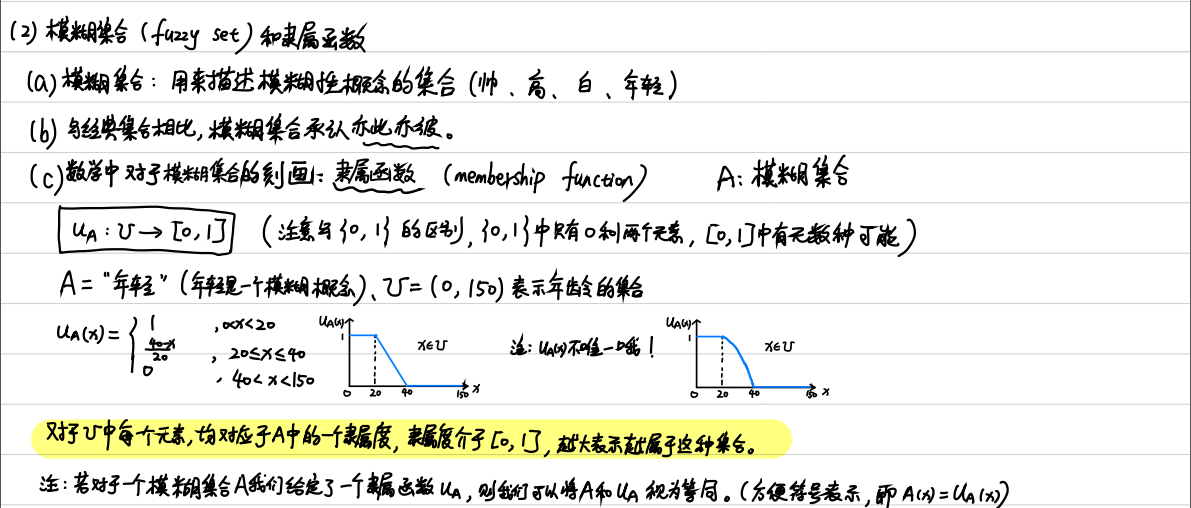 (2) 模糊集合 (fuzzy set) 和隶属函数
(a) 模糊集合：用来描述模糊性概念的集合 (帅、高、白、年轻)
(b) 与经典集合相比，模糊集合承认亦此亦彼。
(c) 数学中对于模糊集合的刻画：隶属函数 (membership function) A：模糊集合
u_A : U → [0,1] (注意与{0,1}的区别，{0,1}中只有0和1两个元素，[0,1]中有无数种可能)
A = "年轻" (年轻是一个模糊概念)、U = (0,150) 表示年龄的集合
u_A(x) = { 1 , 0<x<20
(40-x)/20 , 20≤x≤40
0 , 40<x<150
u_A(x) 1 0 20 40 150 x x∈U
注：u_A(x)不唯一哦！
u_A(x) 1 0 20 40 150 x x∈U
对于U中每个元素，均对应于A中的一个隶属度，隶属度介于[0,1]，越大表示越属于这种集合。
注：若对于一个模糊集合A我们给定了一个隶属函数u_A，则我们可以将A和u_A视为等同。(方便符号表示，即A(x)=u_A(x))